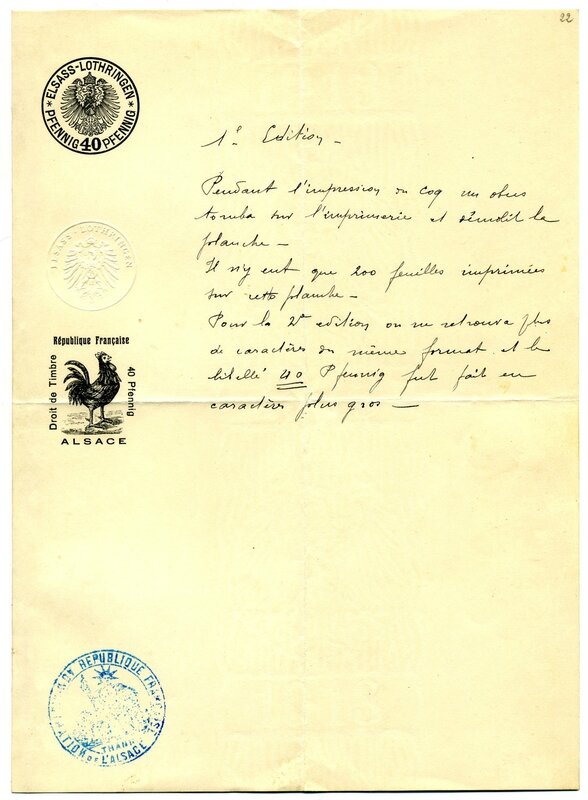 22
* ELSASS-LOTHRINGEN *
PFENNIG 40 PFENNIG
ELSASS-LOTHRINGEN
République Française
Droit de Timbre
40 Pfennig
ALSACE
1e Edition –
Pendant l'impression du coq un obus
tomba sur l'imprimerie et démolit la
planche –
Il n'y eut que 200 feuilles imprimées
sur cette planche –
Pour la 2e edition on ne retrouva plus
de caractères du même format et le
libellé 40 Pfennig fut fait en
caractères plus gros –
REPUBLIQUE
THANN
DE L'ALSACE